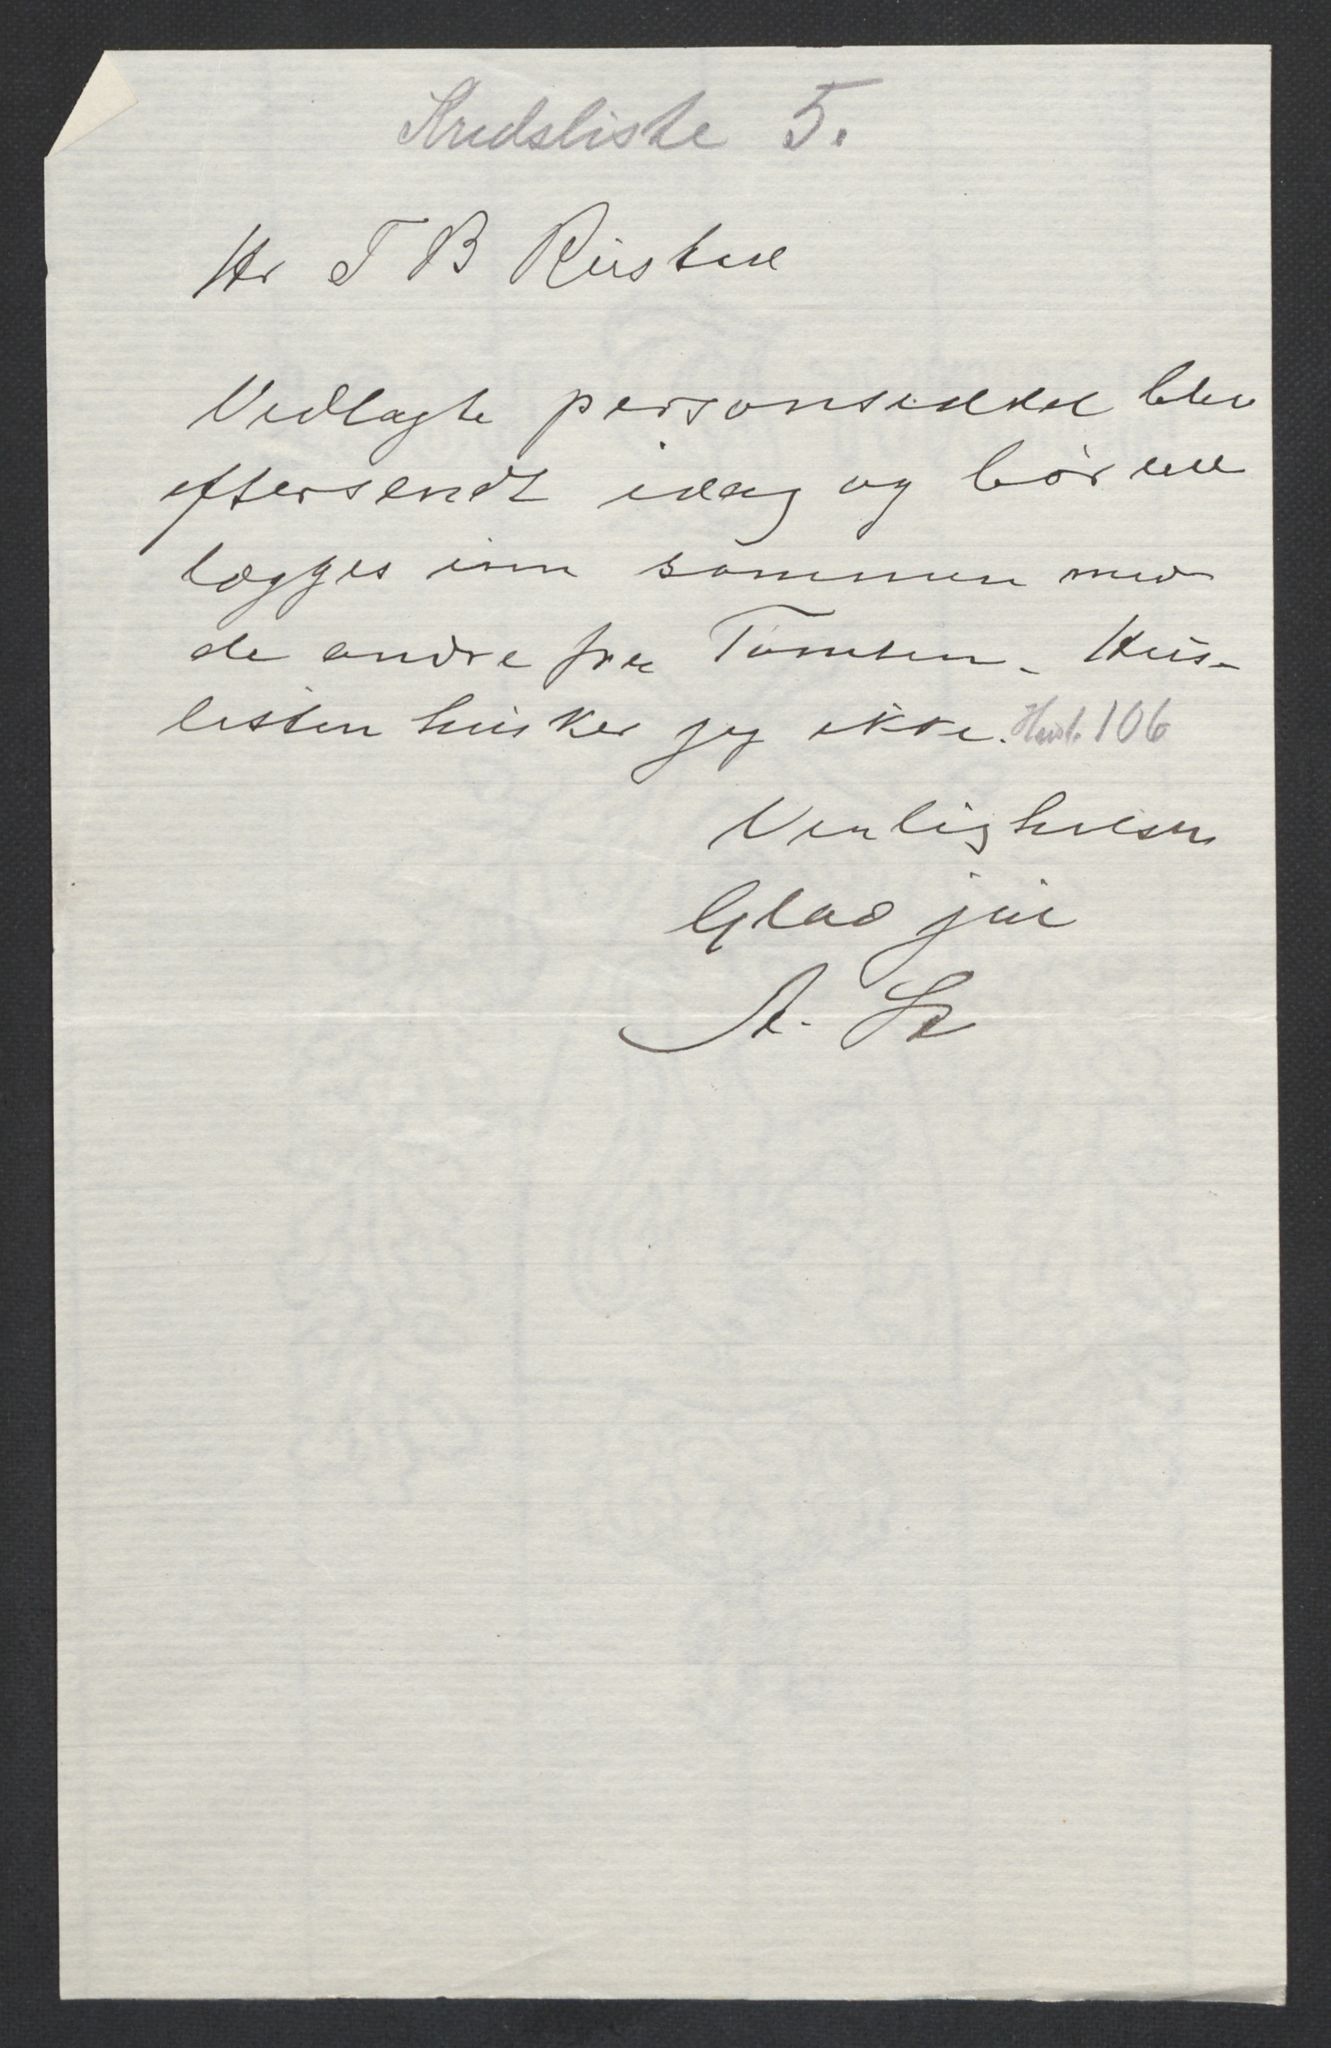 Kredsliste 5.
Hr T B Rustad
Vedlagte personseddel blev
eftersendt idag og bör
lægges inn sammen med
de andre fra Tomten. Hus-
listen husker jeg ikke. Husl. 106
Venlig hilsen
Glad jul
A.